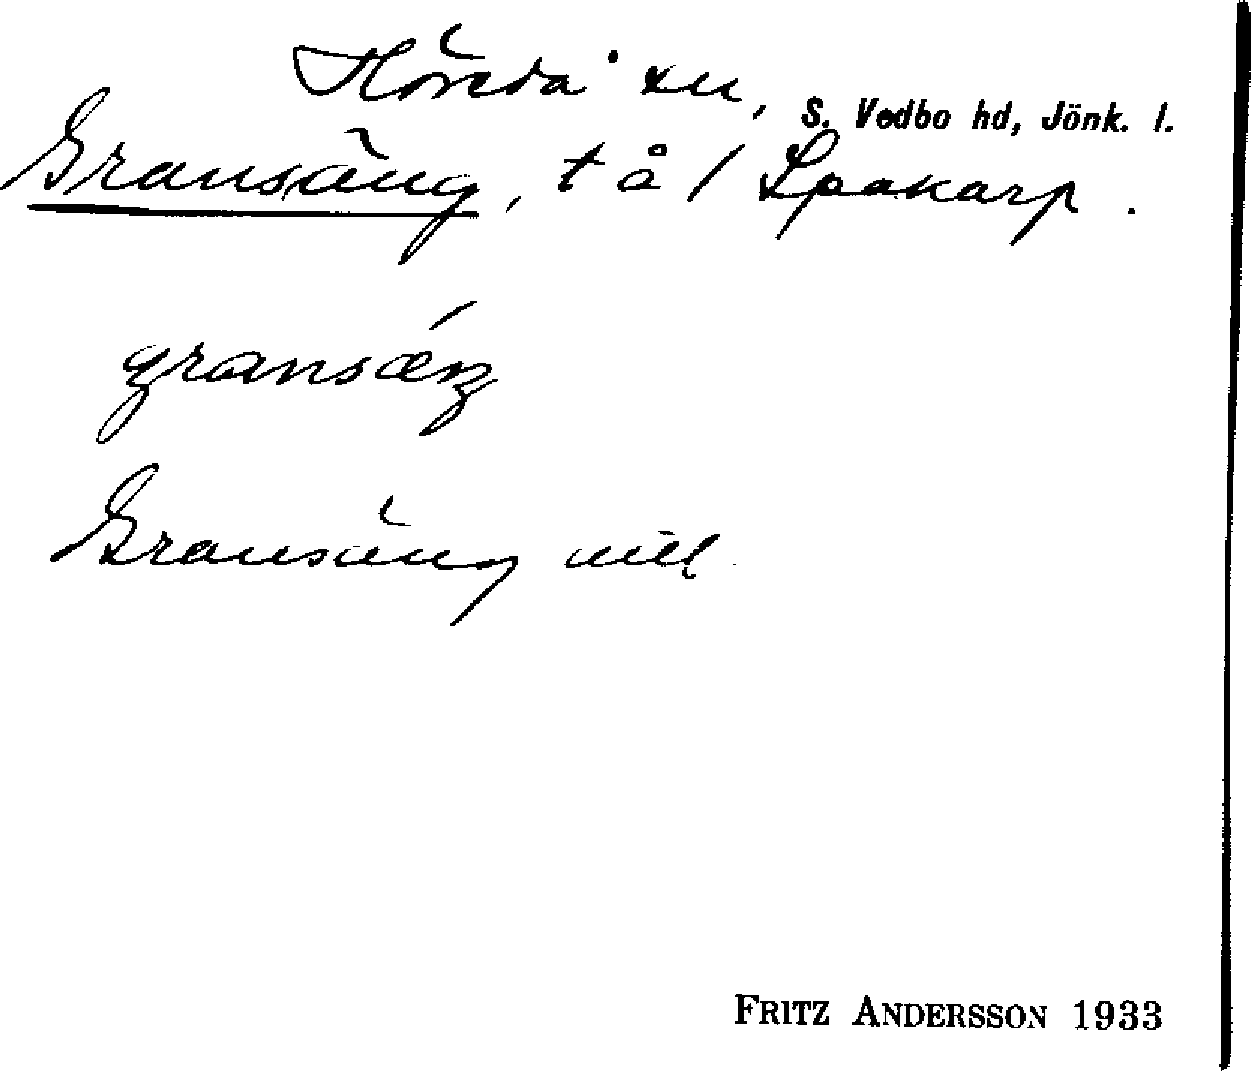 Höreda sn, S. Vedbo hd, Jönk. l.
Gransäng, t å / Spakarp.
gransǽŋ
Gransäng
FRITZ ANDERSSON 1933